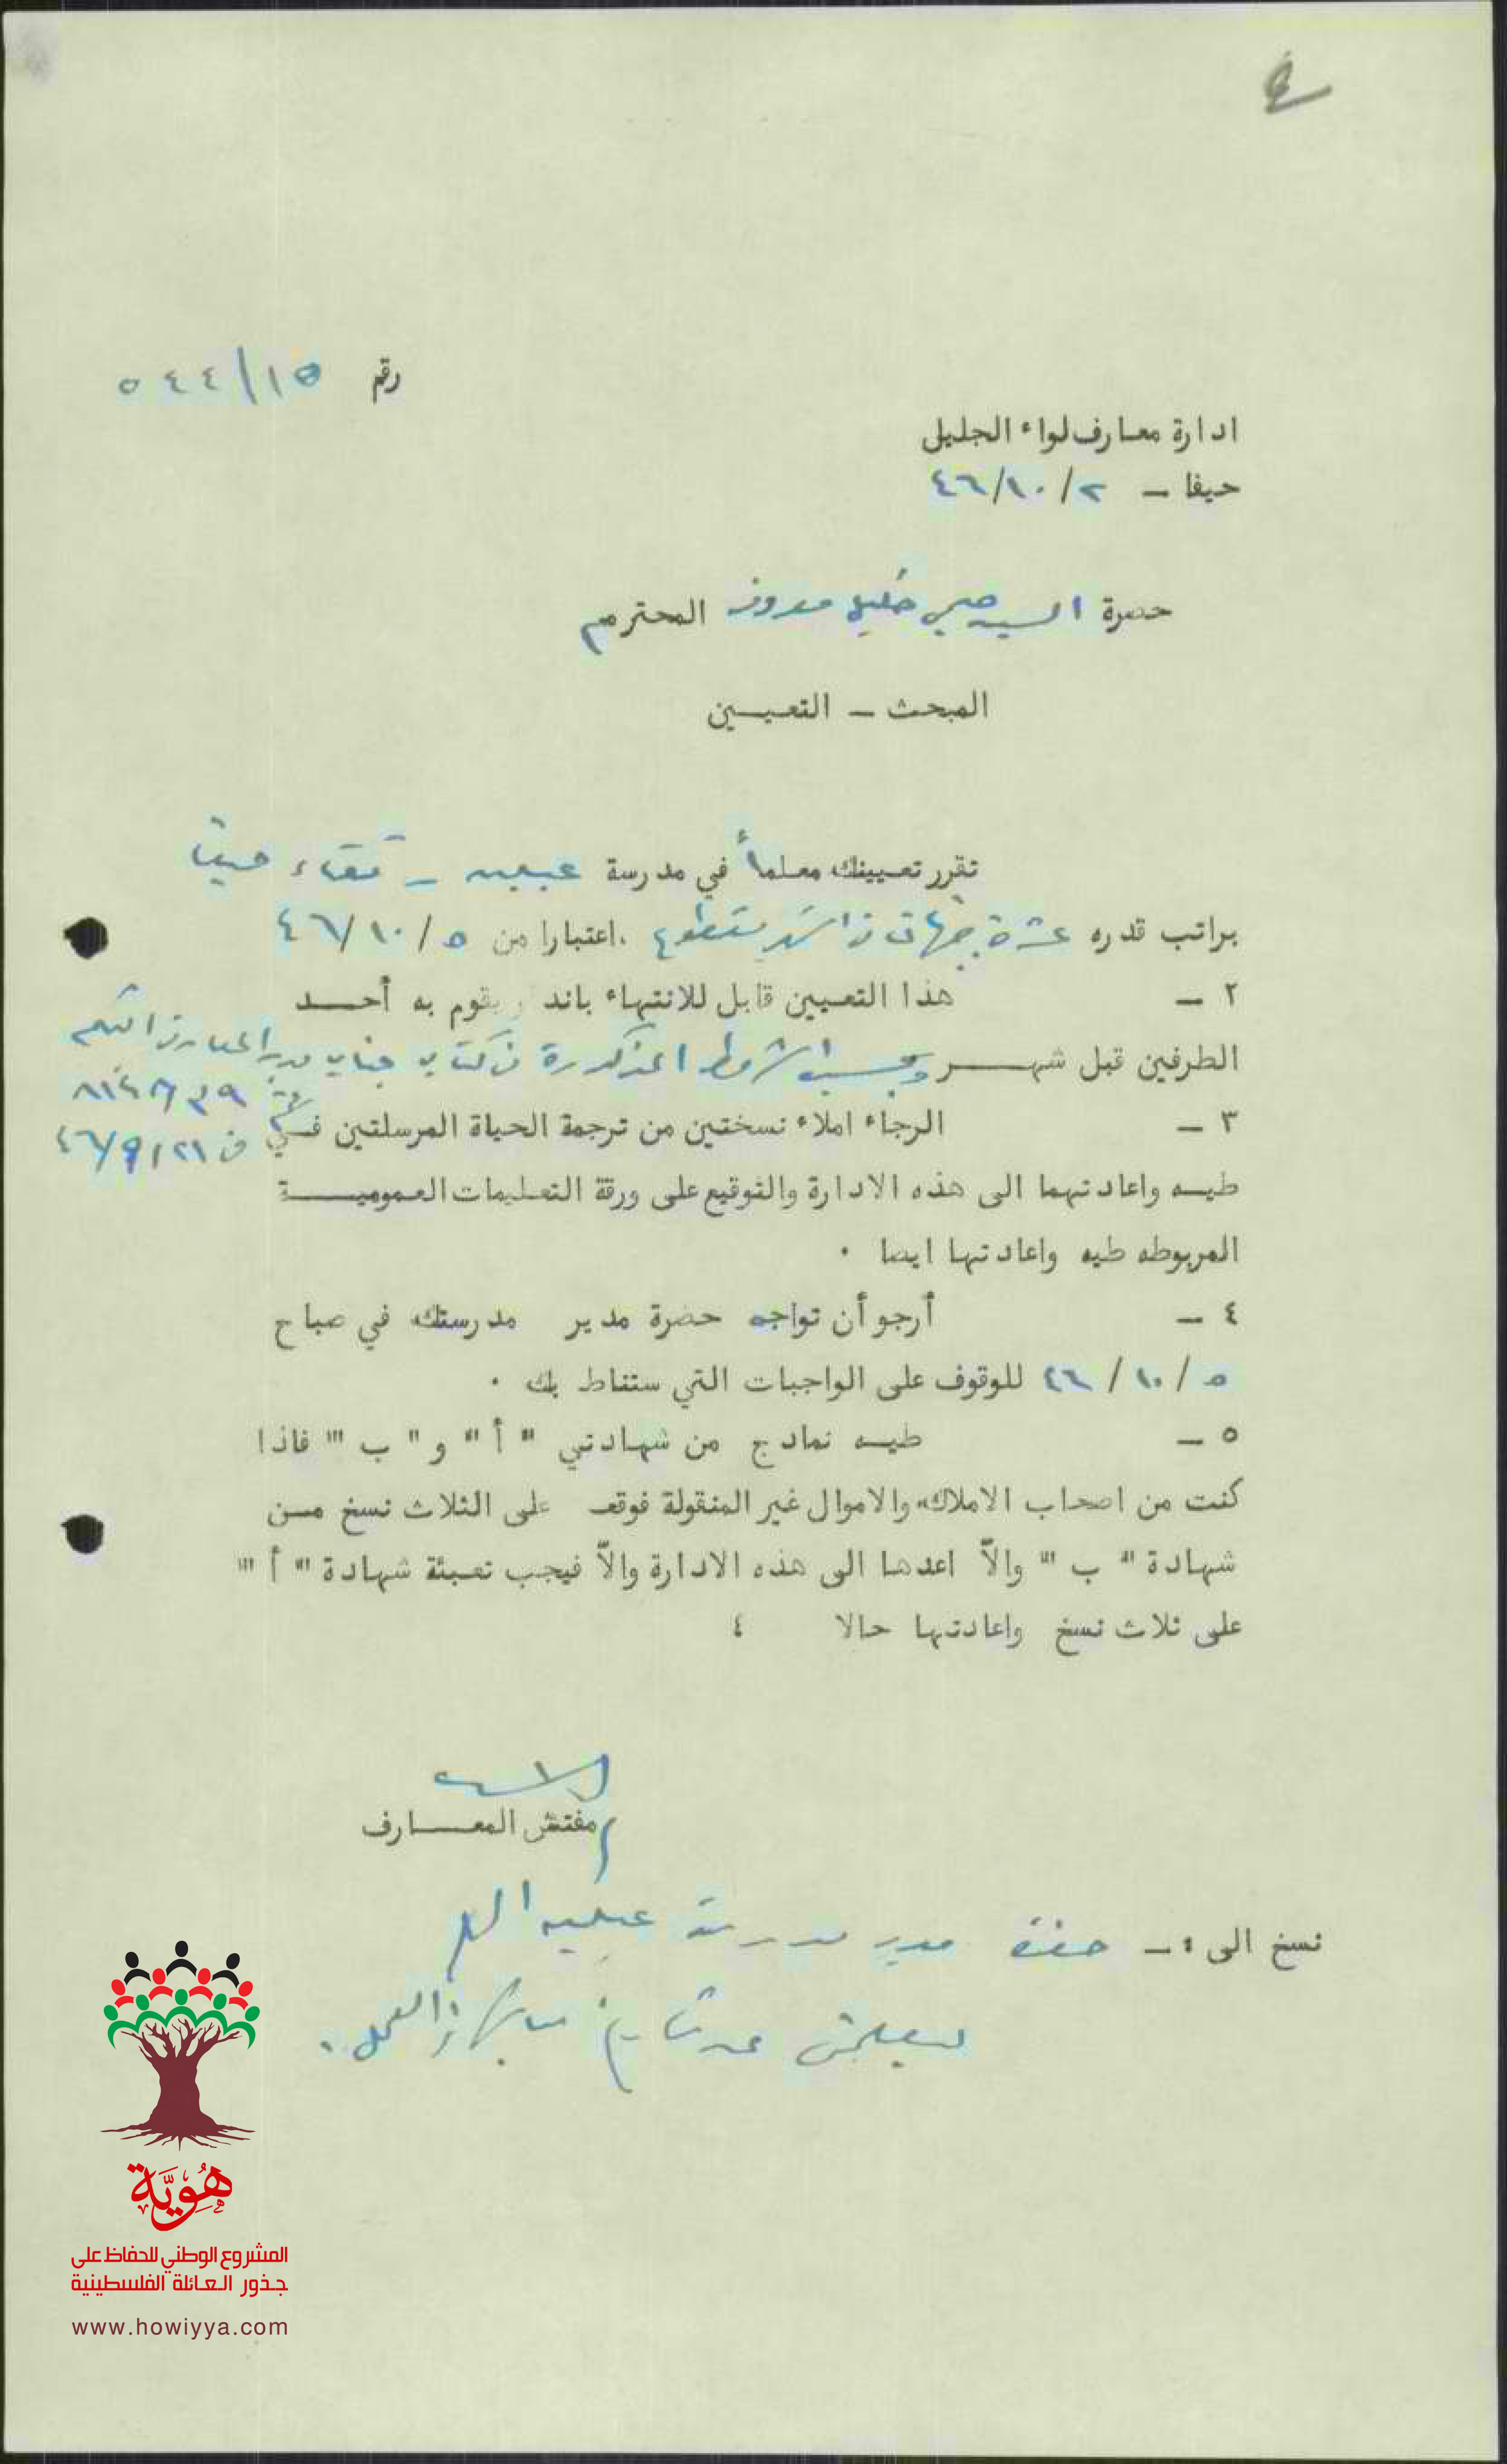 ٤
رقم ٥٤٤/١٥
ادارة معارف لواء الجليل
حيفا – ٤٦/١٠/٢
حضرة السيد صبحي خليل معروف المحترم
المبحث – التعيـــين
تقرر تعيينك معلماً في مدرسة عبلين – قضاء حيفا
براتب قدره عشرة جنيهات في الشهر مقطوع ،اعتبارا من ٤٦/١٠/٥
٢ – هذا التعيين قابل للانتهاء باندار يقوم به أحـــد
الطرفين قبل شهـــر وبحسب الشروط المذكورة في كتاب جناب مدير المعارف العام
في ٤٦/٩/٢١
٣ – الرجاء املاء نسختين من ترجمة الحياة المرسلتين فـــي
طيـه واعادتهما الى هذه الادارة والتوقيع على ورقة التعليمات العموميـــة
المربوطه طيه واعادتها ايضا ٠
٤ – أرجو أن تواجه حضرة مدير مدرستك في صباح
٤٦/١٠/٥ للوقوف على الواجبات التي ستناط بك ٠
٥ – طيـه نمادج من شهادتي " أ " و " ب " فاذا
كنت من اصحاب الاملاك والاموال غير المنقولة فوقع على الثلاث نسخ مـن
شهادة " ب " والاّ اعدها الى هذه الادارة والاّ فيجب تعبئة شهادة " أ "
على ثلاث نسخ واعادتها حالا ؛
مفتش المعـــارف
نسخ الى :– حضرة مدير مدرسة عبلين
ليعلمني عن تاريخ مباشرته العمل .
هُوِيَّة
المشروع الوطني للحفاظ على
جذور العائلة الفلسطينية
www.howiyya.com